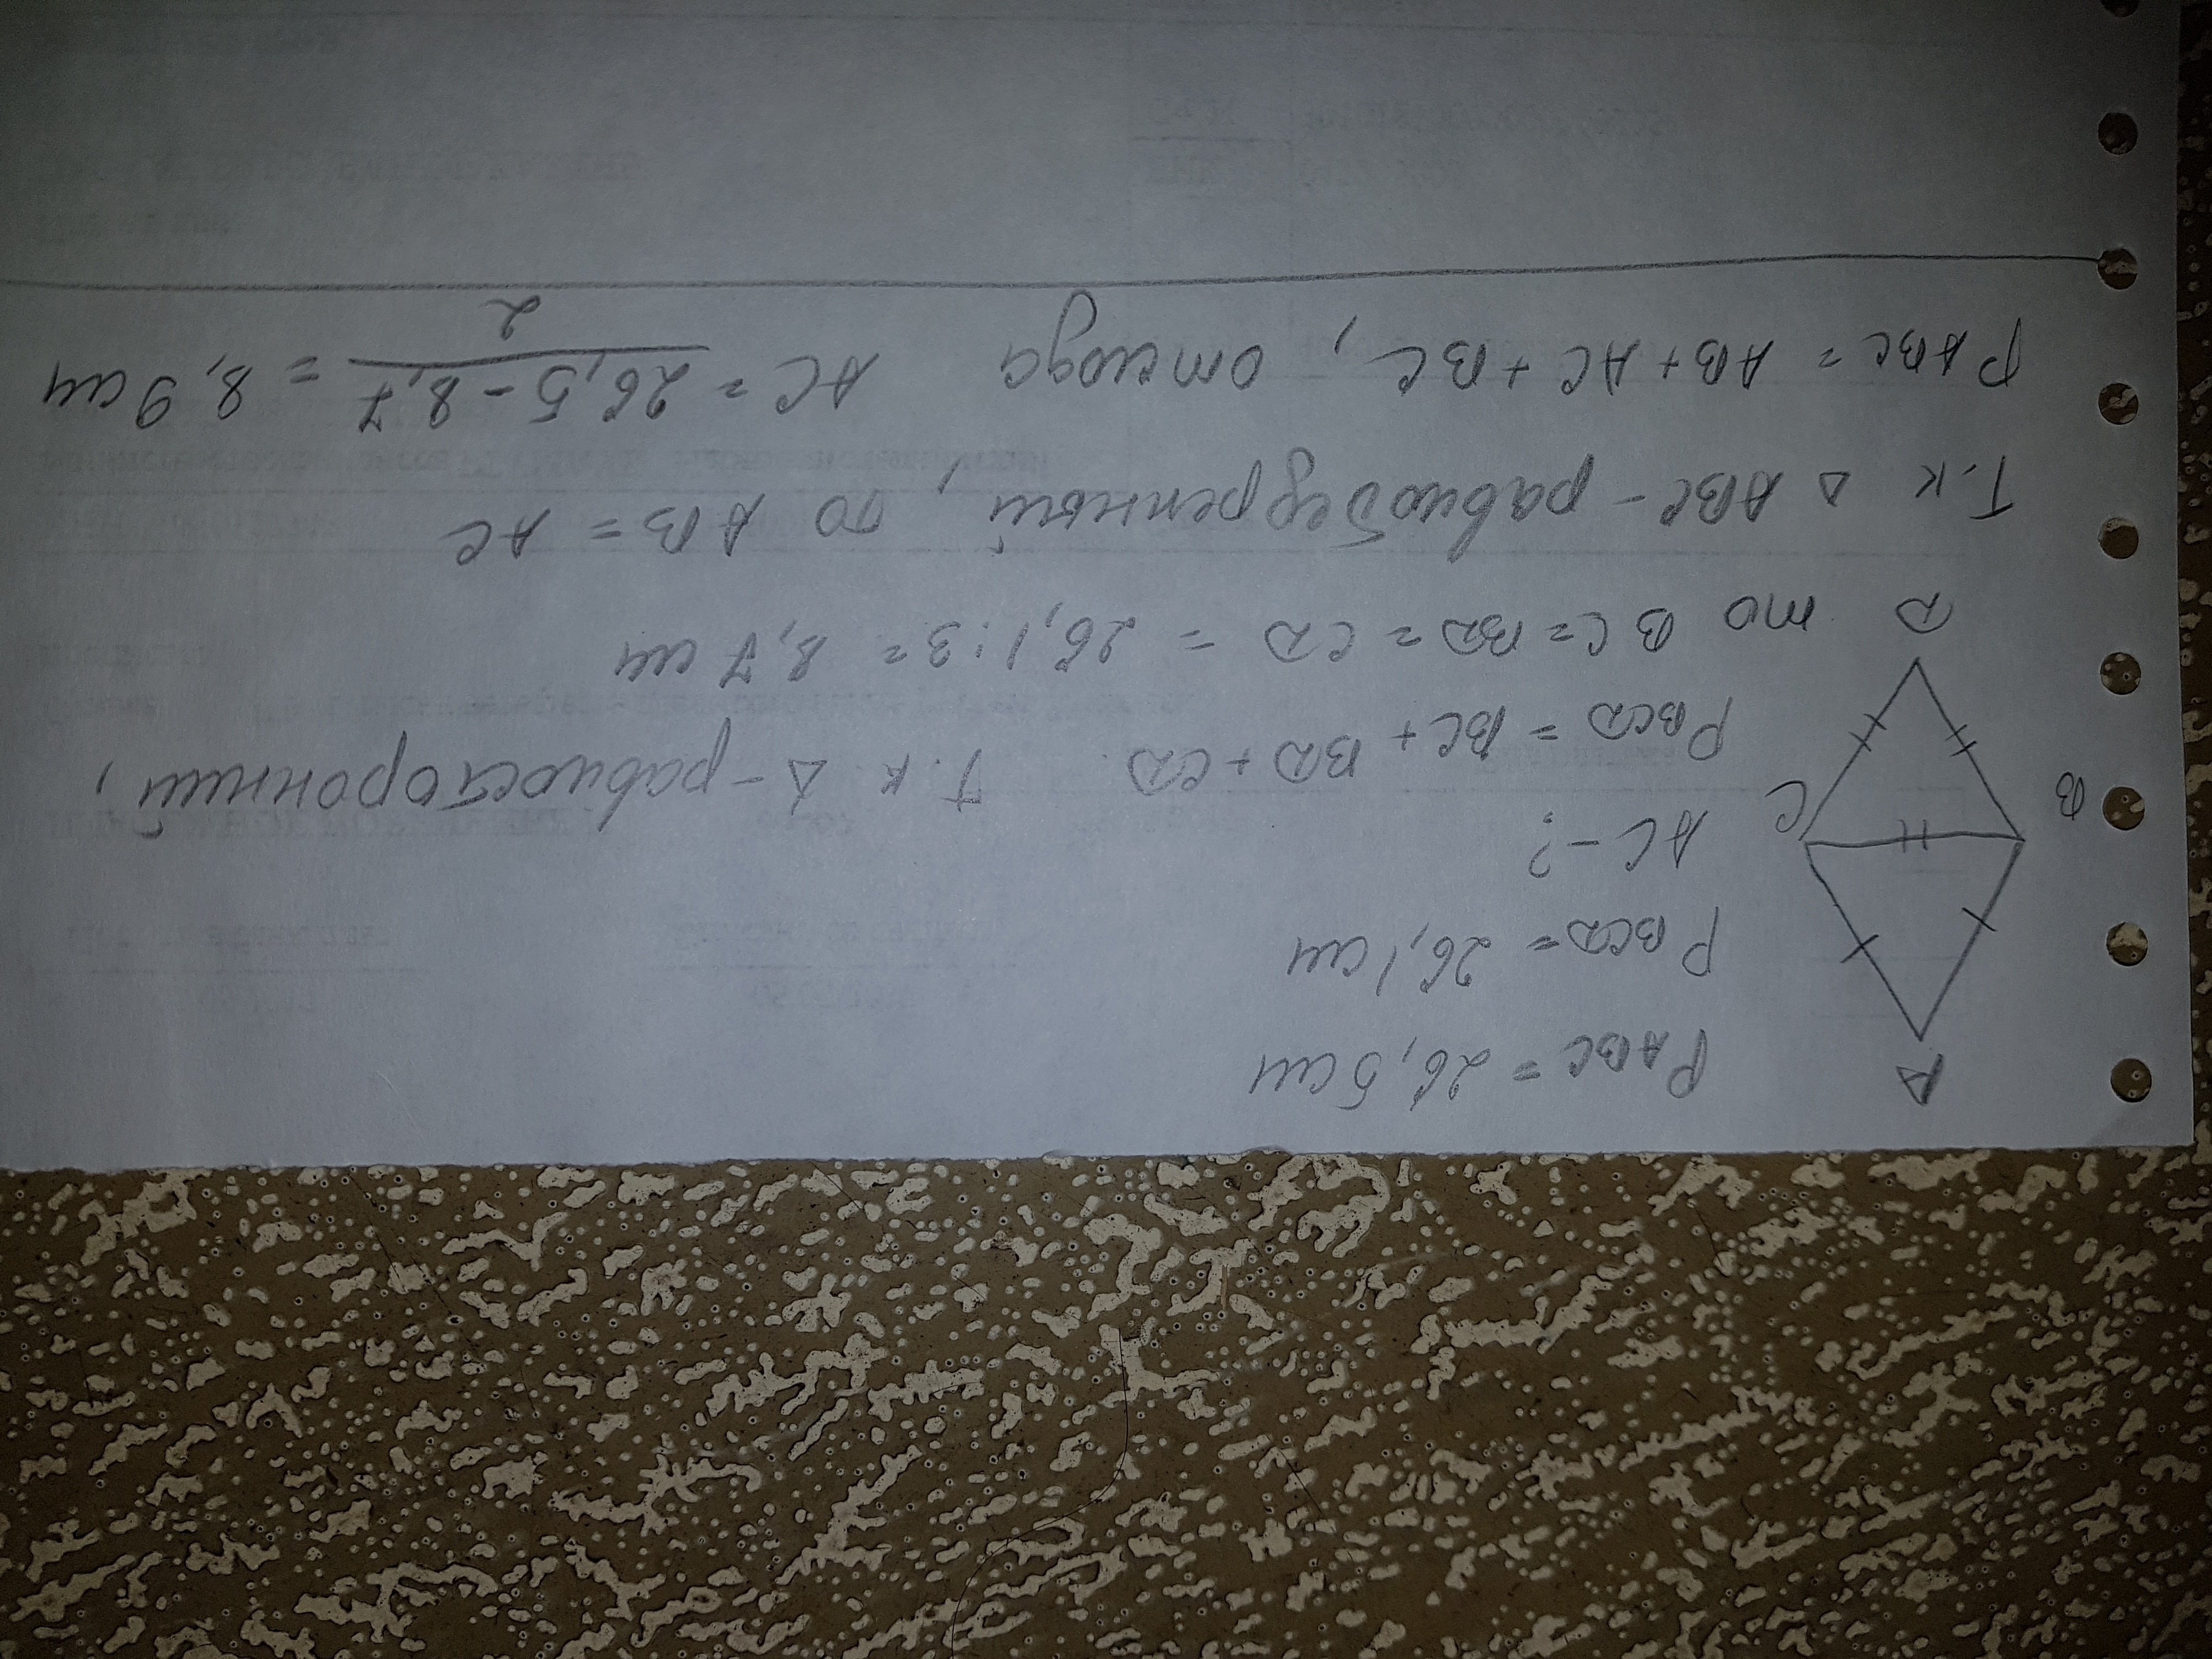 A
P ABC = 26,5 см
P BCD = 26,1 см
AC - ?
B
C
P BCD = BC + BD + CD. Т.к. Δ - равносторонний,
D
то BC = BD = CD = 26,1 : 3 = 8,7 см
Т.к Δ ABC - равнобедренный, то AB = AC
P ABC = AB + AC + BC, отсюда AC = 26,5 - 8,7 / 2 = 8,9 см